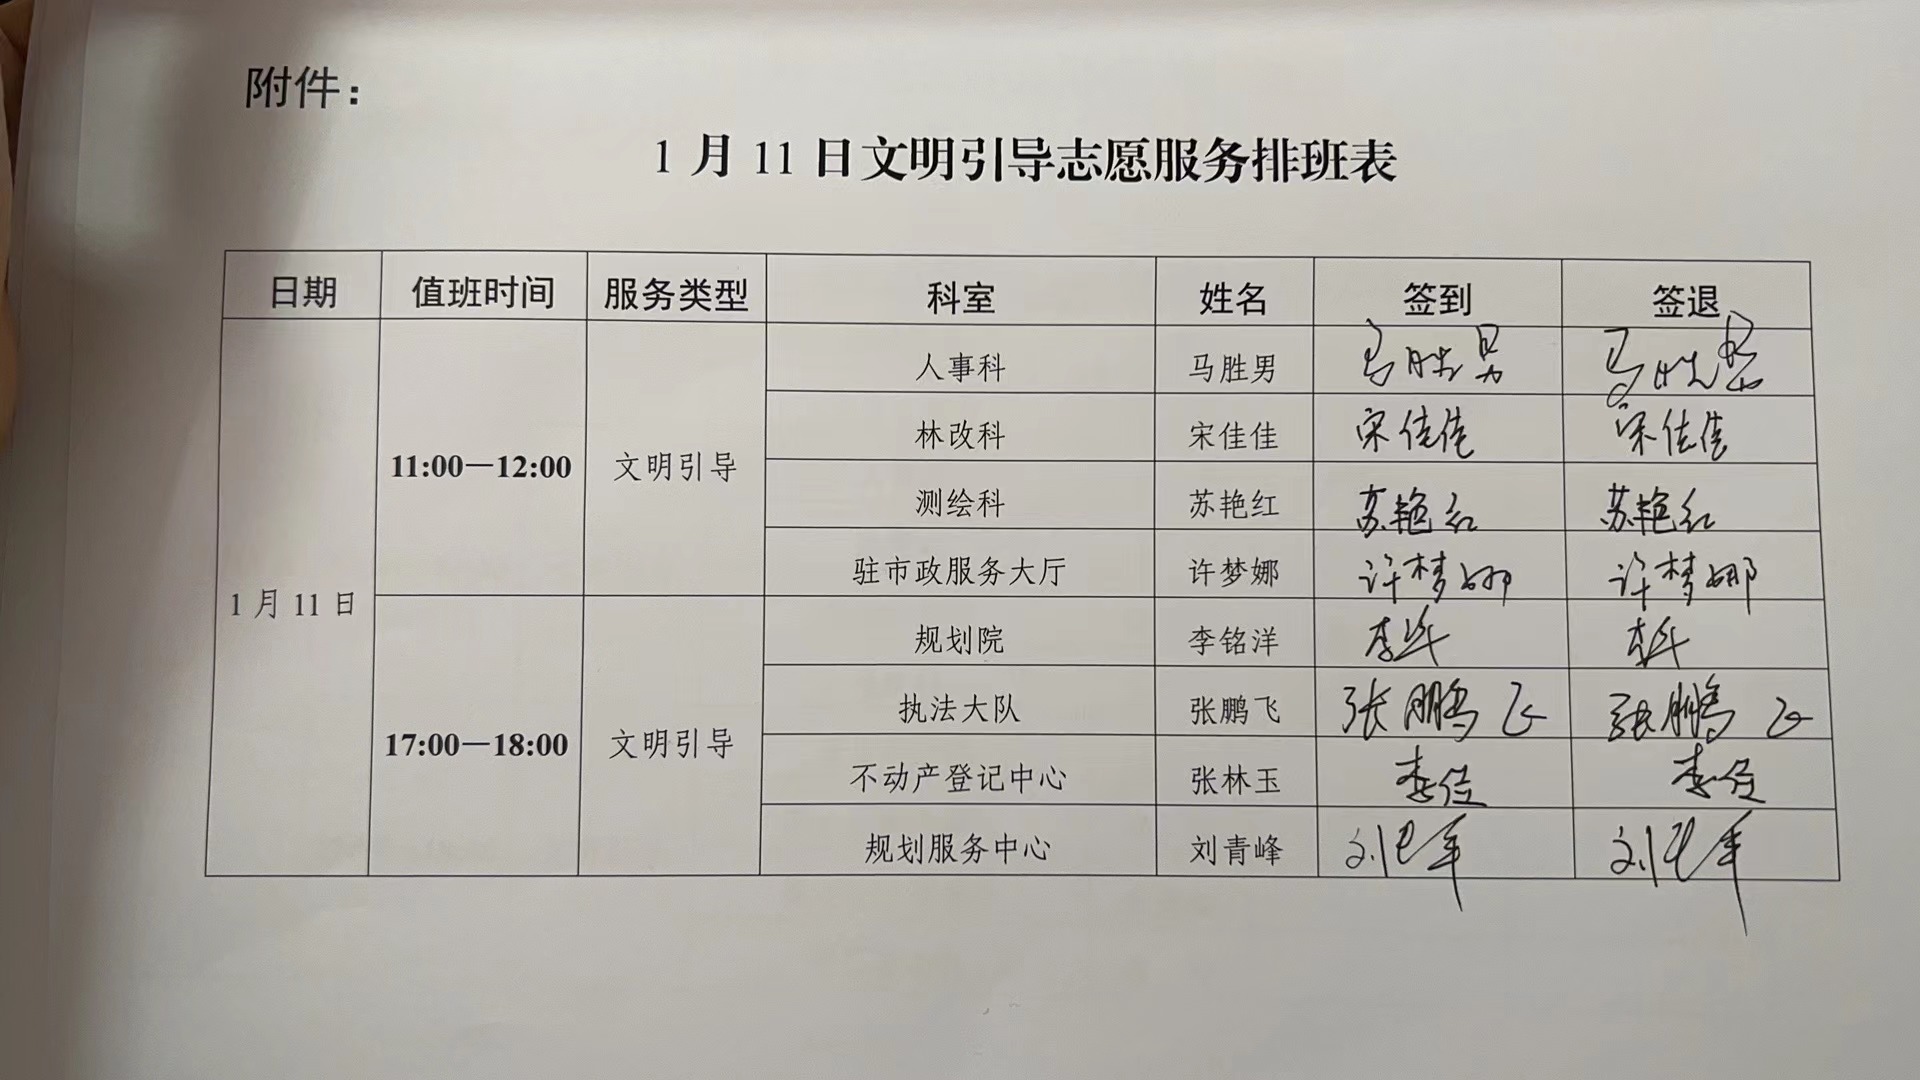 附件：
1月11日文明引导志愿服务排班表
日期 值班时间 服务类型 科室 姓名 签到 签退
1月11日 11:00—12:00 文明引导 人事科 马胜男 马胜男 马胜男
林改科 宋佳佳 宋佳佳 宋佳佳
测绘科 苏艳红 苏艳红 苏艳红
驻市政服务大厅 许梦娜 许梦娜 许梦娜
17:00—18:00 文明引导 规划院 李铭洋
执法大队 张鹏飞 张鹏飞 张鹏飞
不动产登记中心 张林玉
规划服务中心 刘青峰